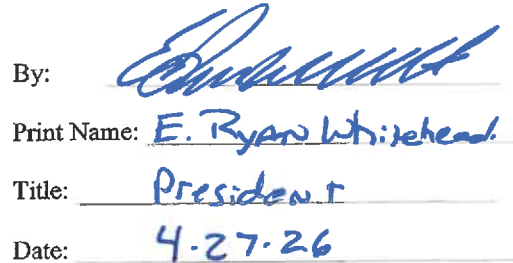 By:
Print Name: E. Ryan Whitehead
Title: President
Date: 4.27.26